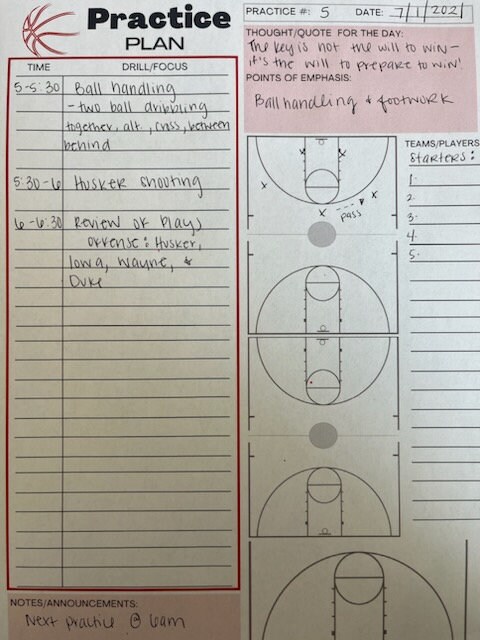 Practice
PLAN
TIME DRILL/FOCUS
5-5:30 Ball handling
- two ball dribbling
together, alt., cross, between
behind
5:30-6 Husker shooting
6-6:30 Review of Plays
Offense: Husker,
Iowa, Wayne, &
Duke
NOTES/ANNOUNCEMENTS:
Next practice @ 6am
PRACTICE #: 5 DATE: 7/1/2021
THOUGHT/QUOTE FOR THE DAY:
The key is not the will to win-
it's the will to prepare to win!
POINTS OF EMPHASIS:
Ball handling & footwork
x x
x x
x
pass
TEAMS/PLAYERS
Starters:
1.
2.
3.
4.
5.